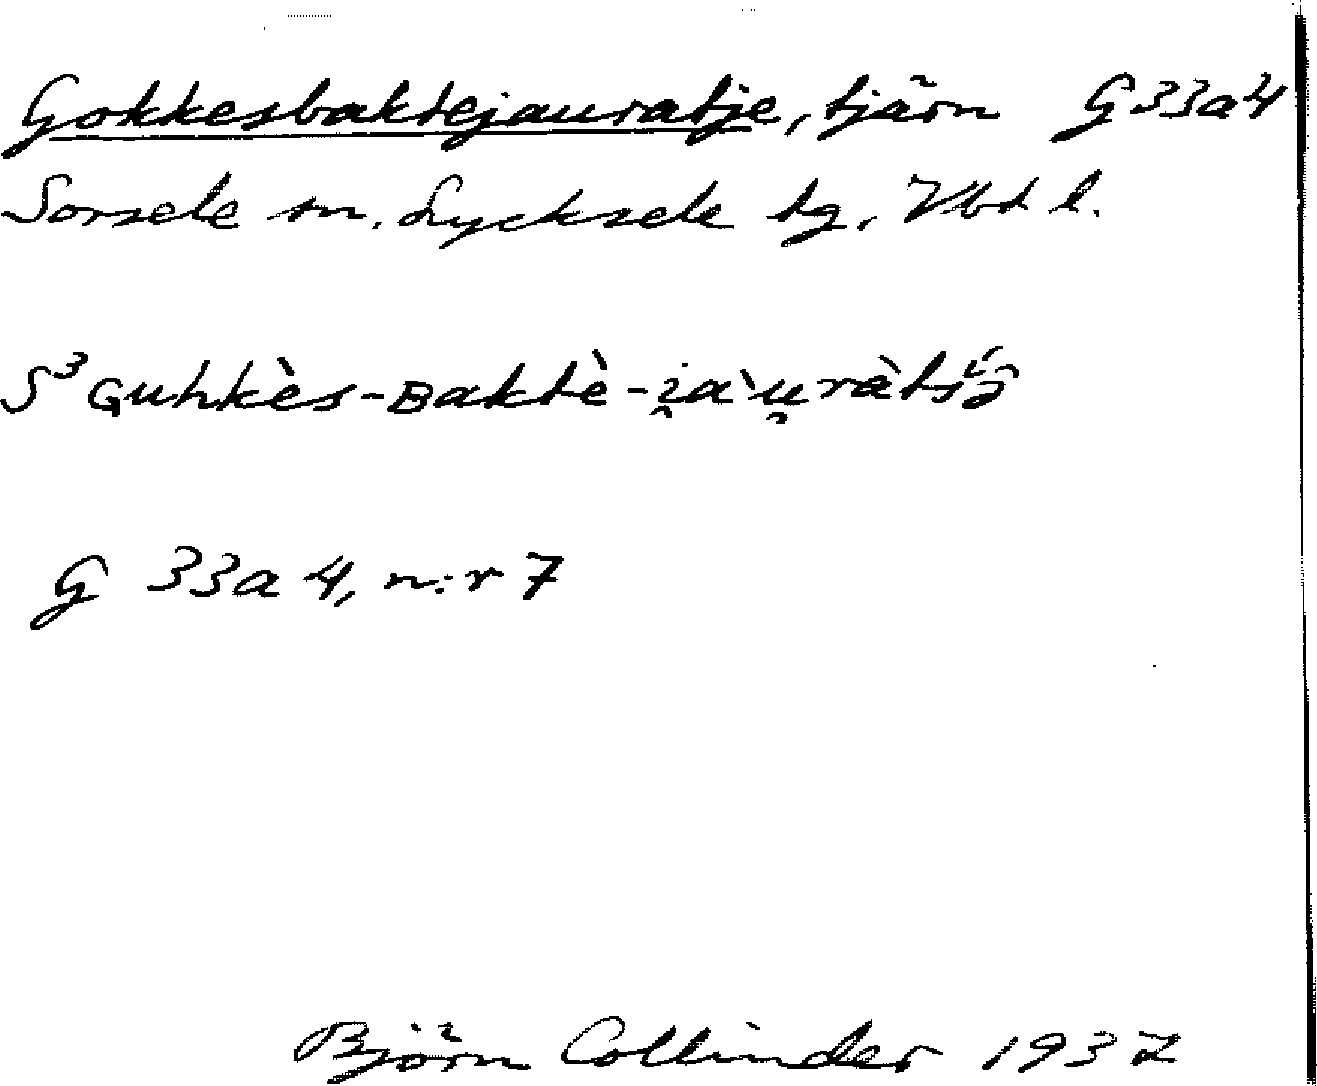 Gokkesbaktejauratje, tjärn G33a4
Sorsele sn. Lycksele tg, Vbt l.
S³ Guhkès-Baktè-i̯a`u̯ràtśɔ̂
G 33a 4, n:r 7
Björn Collinder 1937